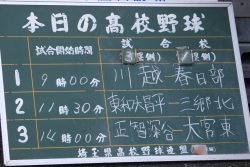 本日の高校野球
試合開始時間 試合校
(塁側) (塁側)
1 9時00分 川越 春日部
2 11時30分 東和大昌平 三郷北
3 14時00分 正智深谷 大宮東
埼玉県高校野球連盟